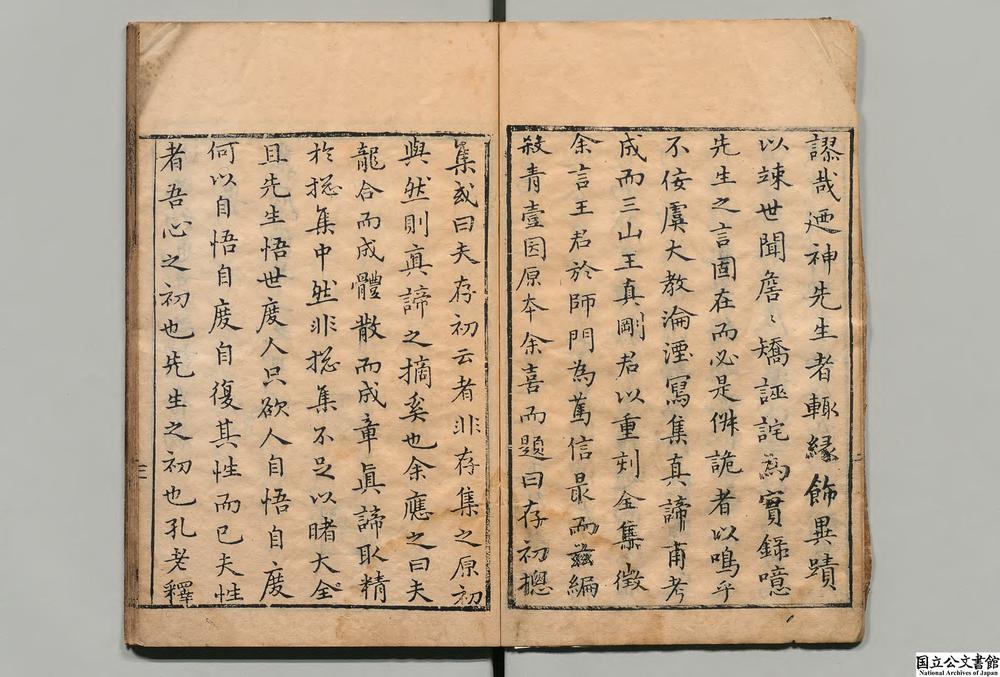 謬哉廼神先生者輙縁飾異蹟
以竦世聞詹〻矯誣詫爲實錄噫
先生之言固在而必是俶詭者以鳴乎
不佞虞大教淪湮寫集真諦甫考
成而三山王真剛君以重刻全集徵
余言王君於師門為篤信最而兹編
殺青壹因原本余喜而題曰存初摠
集或曰夫存初云者非存集之原初
與然則真諦之摘奚也余應之曰夫
龍合而成體散而成章眞諦取精
於摠集中然非摠集不足以睹大全
且先生悟世度人只欲人自悟自度
何以自悟自度自復其性而已夫性
者吾心之初也先生之初也孔老釋
二
三
国立公文書館
National Archives of Japan